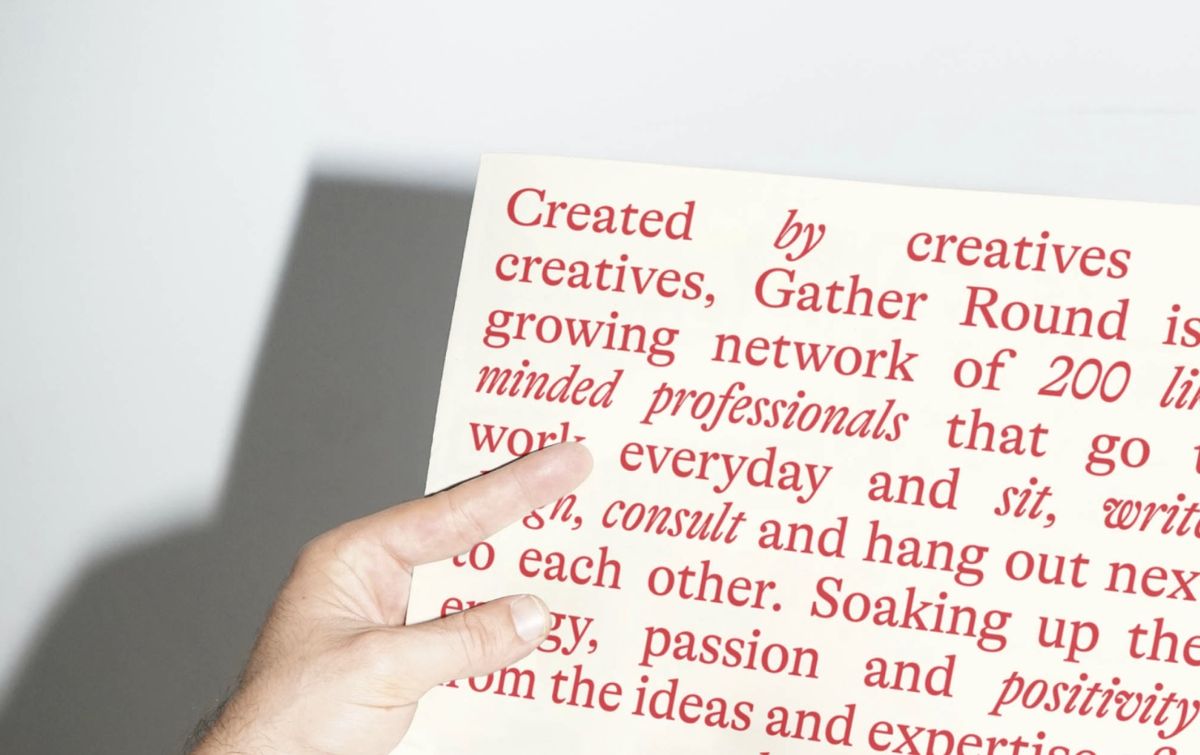 Created by creatives
creatives, Gather Round is
growing network of 200
minded professionals that go
work everyday and sit,
consult and hang out
to each other. Soaking up the
passion and positivity
from the ideas and expertise